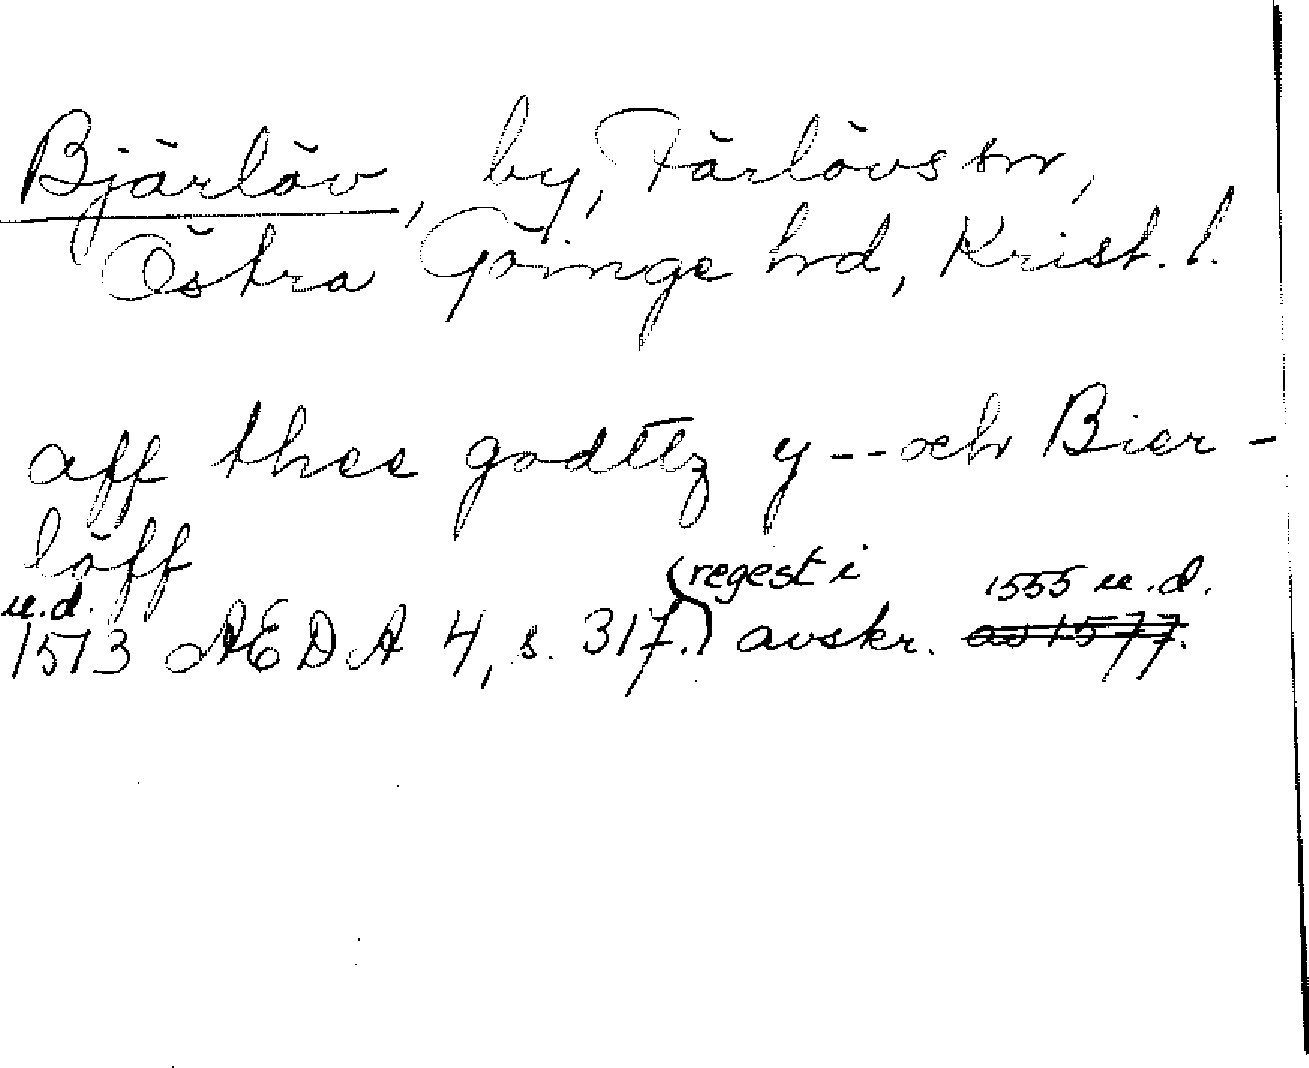 Bjärlöv, by, Färlövs sn,
Östra Göinge hd, Krist. l.
aff thee godttz y -- och Bier-
löff
u.d. regest i 1555 u.d.
1513 AEDA 4, s. 317. avskr. av 1577.